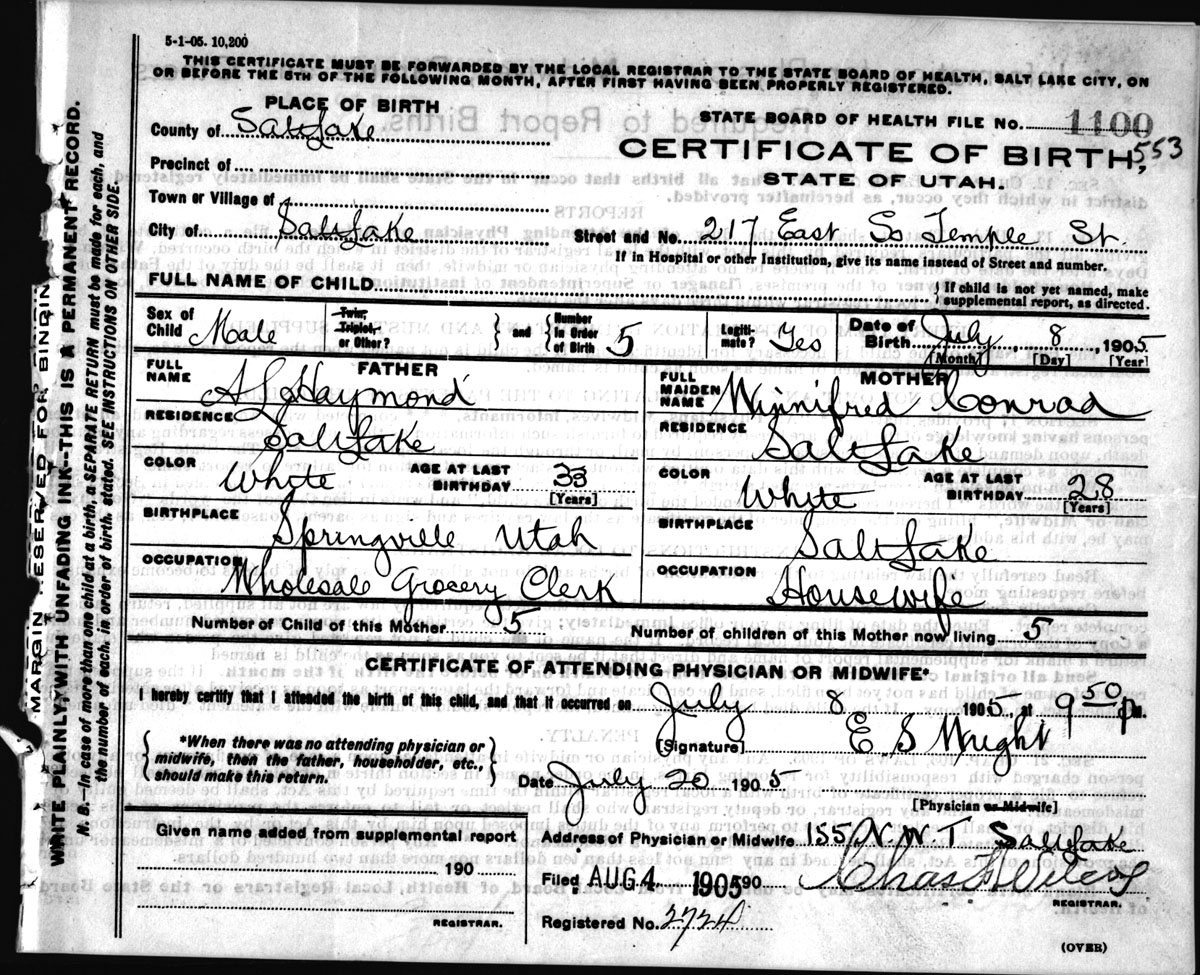 5-1-05. 10,200
THIS CERTIFICATE MUST BE FORWARDED BY THE LOCAL REGISTRAR TO THE STATE BOARD OF HEALTH, SALT LAKE CITY, ON
OR BEFORE THE 5TH OF THE FOLLOWING MONTH, AFTER FIRST HAVING BEEN PROPERLY REGISTERED.
PLACE OF BIRTH
STATE BOARD OF HEALTH FILE NO. 1100
County of Salt Lake
CERTIFICATE OF BIRTH, 553
STATE OF UTAH.
Precinct of
Town or Village of
City of Salt Lake
Street and No. 217 East So Temple St.
If in Hospital or other Institution, give its name instead of Street and number.
FULL NAME OF CHILD
If child is not yet named, make
supplemental report, as directed.
Sex of Child Male
Twin, Triplet, or Other?
and
Number in Order of Birth 5
Legiti-mate? Yes
Date of Birth July 8, 1905
[Month] [Day] [Year]
FATHER
FULL NAME A L Haymond
MOTHER
FULL MAIDEN NAME Winnifred Conrad
RESIDENCE Salt Lake
RESIDENCE Salt Lake
COLOR White
AGE AT LAST BIRTHDAY 33 [Years]
COLOR White
AGE AT LAST BIRTHDAY 28 [Years]
BIRTHPLACE Springville Utah
BIRTHPLACE Salt Lake
OCCUPATION Wholesale Grocery Clerk
OCCUPATION Housewife
Number of Child of this Mother 5
Number of children of this Mother now living 5
CERTIFICATE OF ATTENDING PHYSICIAN OR MIDWIFE*
I hereby certify that I attended the birth of this child, and that it occurred on July 8 1905, at 9 50 P m.
*When there was no attending physician or
midwife, then the father, householder, etc.,
should make this return.
[Signature] E S Wright
Date July 20 1905
[Physician or Midwife]
Given name added from supplemental report
190
REGISTRAR.
Address of Physician or Midwife 155 N. W. T Salt Lake
Filed AUG 4 1905 190
REGISTRAR.
Registered No. 2724
(OVER)
MARGIN RESERVED FOR BINDING
WRITE PLAINLY, WITH UNFADING INK--THIS IS A PERMANENT RECORD.
N. B.--In case of more than one child at a birth, a SEPARATE RETURN must be made for each, and
the number of each, in order of birth, stated. SEE INSTRUCTIONS ON OTHER SIDE.